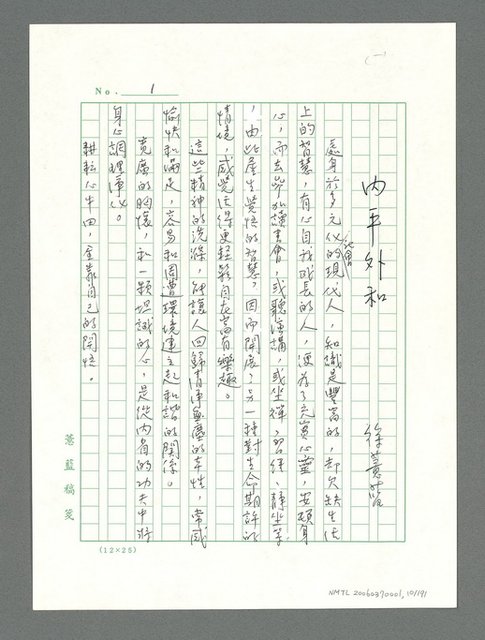 (一)
No. 1
內平外和
徐薏藍
處身於多元化的社會現代人，知識是豐富的，却欠缺生活
上的智慧，有心自我成長的人，便為了充實心靈，安頓身
心，而去參加讀書會，或聽演講，或坐禪，習經、靜坐等
，由此產生覺悟的智慧，因而開展另一種對生命期許的
情境，感覺活得更輕鬆自在富有樂趣。
這些精神的洗滌，能讓人回歸清淨無塵的本性，常感
愉快和滿足，容易和周遭環境建立起和諧的關係。
寬廣的胸懷，和一顆坦誠的心，是從內省的功夫中將
身心調理淨化。
耕耘心中田，全靠自己的開悟。
薏藍稿箋
(12×25)
NMTL 20060370001, 101/191